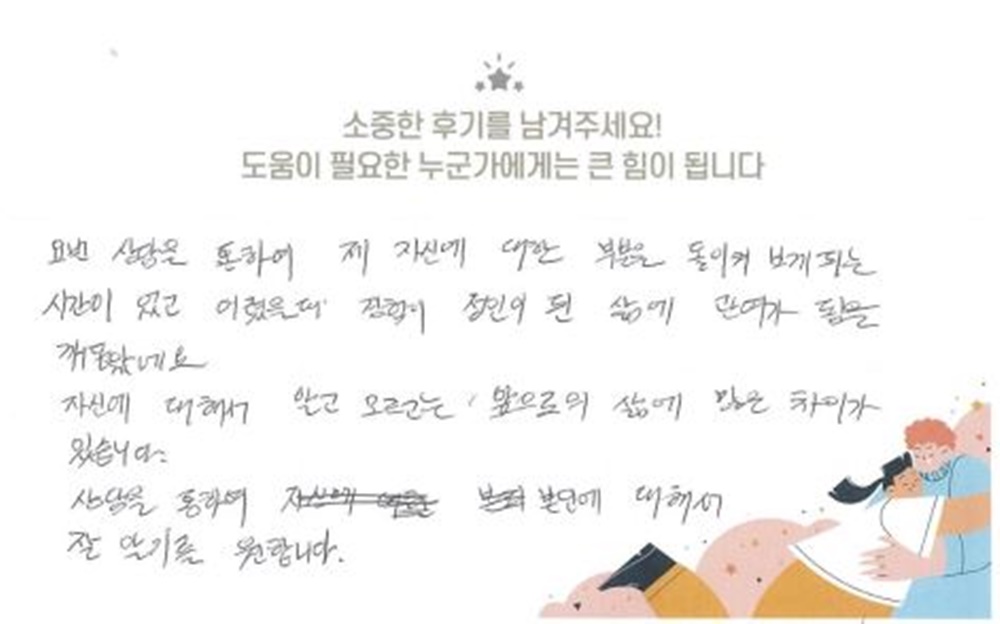 소중한 후기를 남겨주세요!
도움이 필요한 누군가에게는 큰 힘이 됩니다
요번 상담을 통하여 제 자신에 대한 부분을 돌이켜 보게되는
시간이 있고 어렸을때 경험이 성인이 된 삶에 관여가 됨을
깨달았네요
자신에 대해서 알고 모르고는 앞으로의 삶에 많은 차이가
있습니다.
상담을 통하여 본인에 대해서
잘 알기를 원합니다.